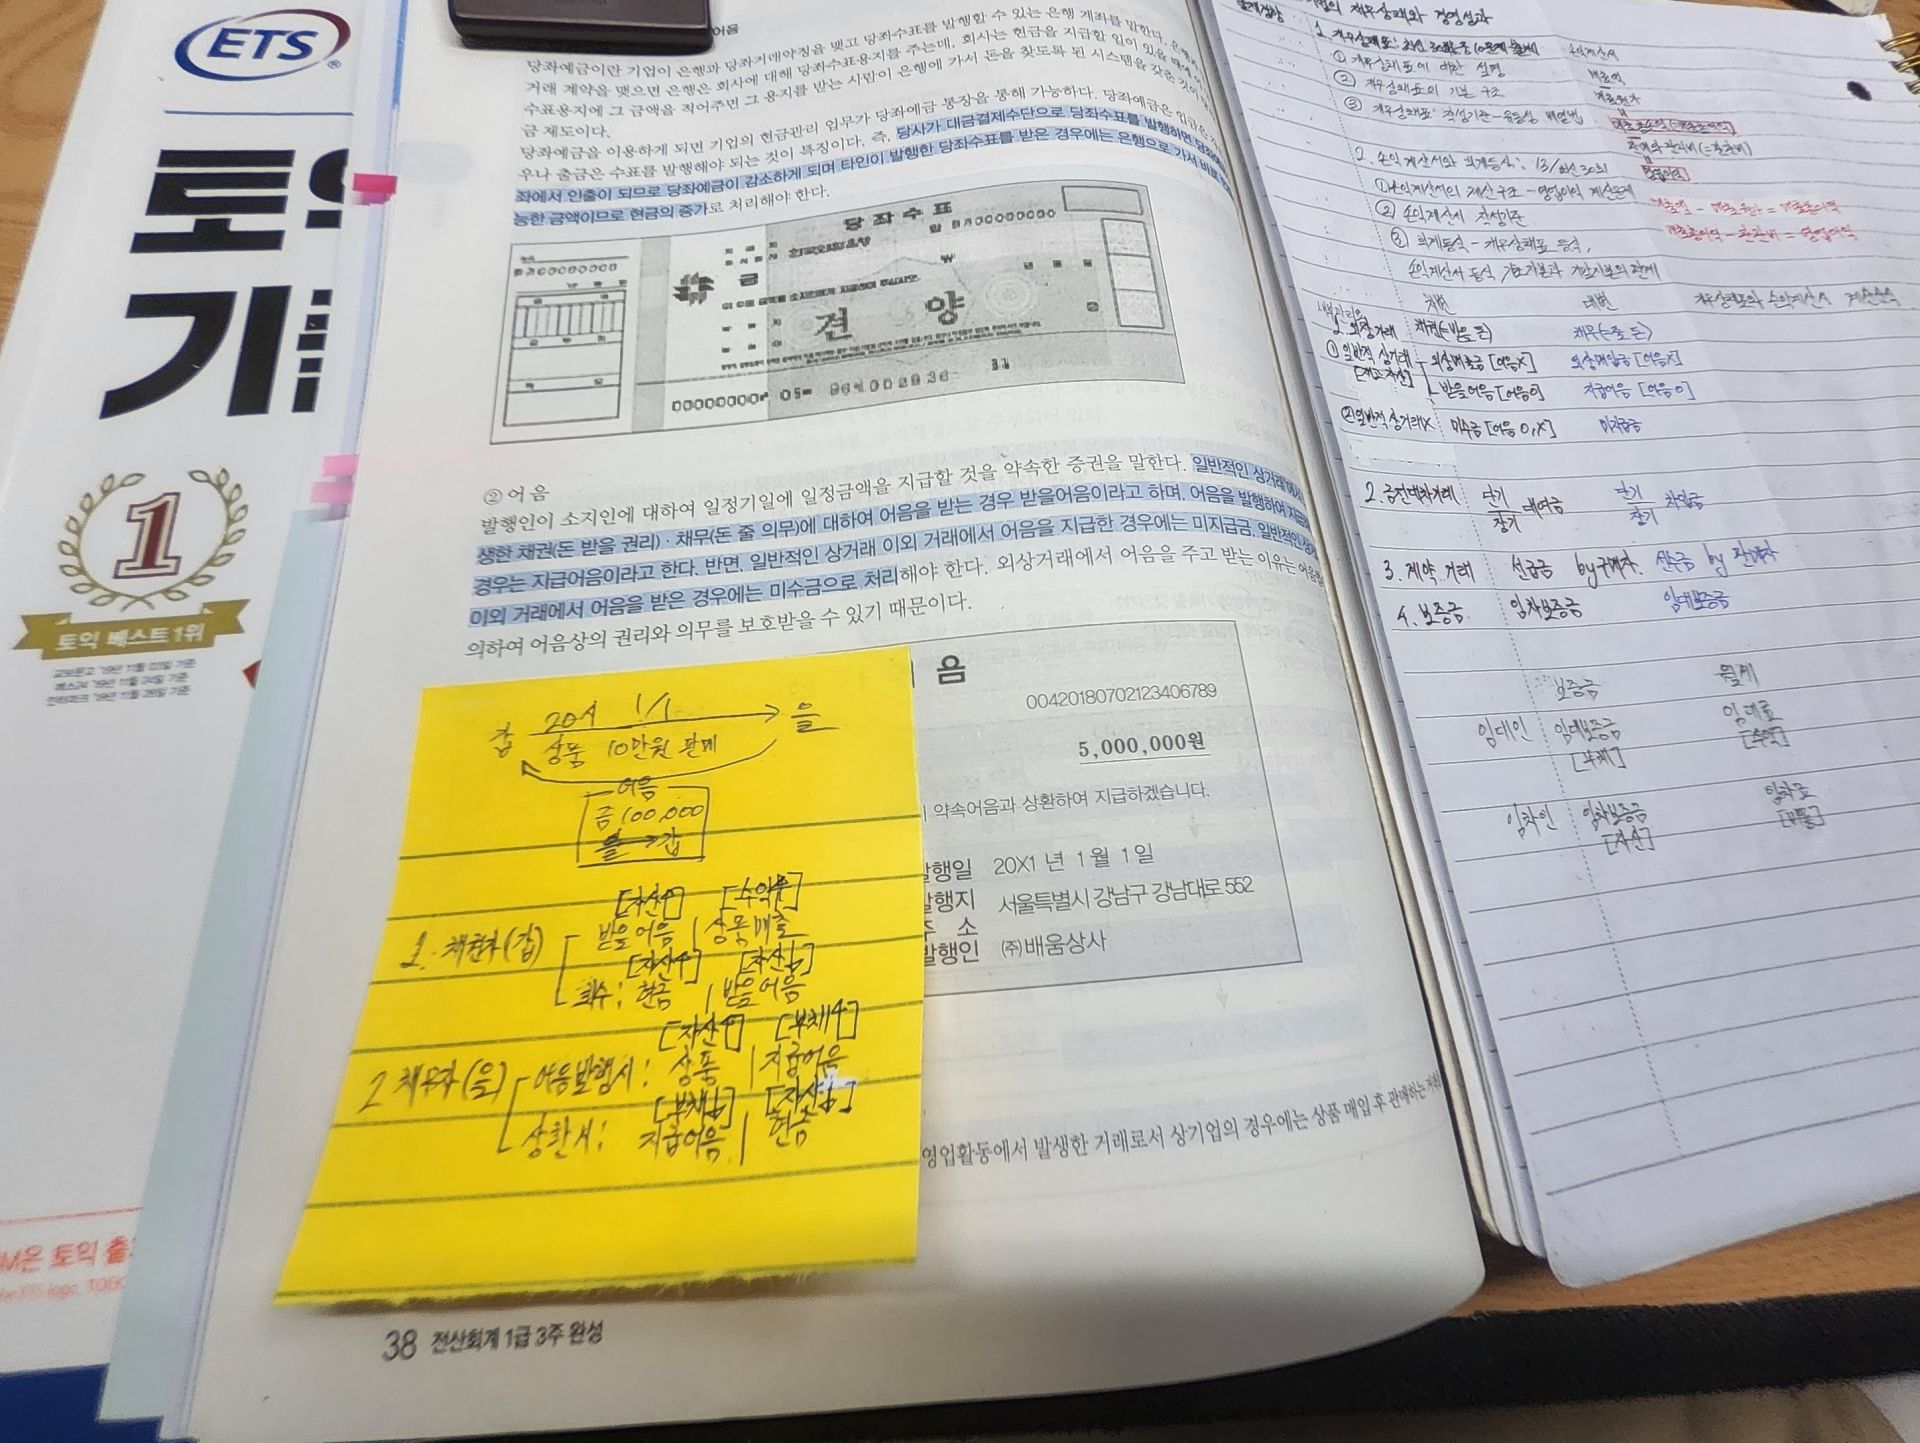 ETS
®
토익
기
1
토익 베스트 1위
38 전산회계 1급 3주 완성
어음
당좌예금이란 기업이 은행과 당좌거래약정을 맺고 당좌수표를 발행할 수 있는 은행 계좌를 말한다. 은행과
거래 계약을 맺으면 은행은 회사에 대해 당좌수표용지를 주는데, 회사는 현금을 지급할 일이 있을 때에
수표용지에 그 금액을 적어주면 그 용지를 받는 사람이 은행에 가서 돈을 찾도록 된 시스템을 갖춘 것이
금 제도이다.
당좌예금을 이용하게 되면 기업의 현금관리 업무가 당좌예금 통장을 통해 가능하다. 당좌예금은 입금은
우나 출금은 수표를 발행해야 되는 것이 특징이다. 즉, 당사가 대금결제수단으로 당좌수표를 발행하면
좌에서 인출이 되므로 당좌예금이 감소하게 되며 타인이 발행한 당좌수표를 받은 경우에는 은행으로 가서
능한 금액이므로 현금의 증가로 처리해야 한다.
당좌수표
금
견 양
② 어 음
발행인이 소지인에 대하여 일정기일에 일정금액을 지급할 것을 약속한 증권을 말한다. 일반적인 상거래에서
생한 채권(돈 받을 권리)·채무(돈 줄 의무)에 대하여 어음을 받는 경우 받을어음이라고 하며, 어음을 발행하여
경우는 지급어음이라고 한다. 반면, 일반적인 상거래 이외 거래에서 어음을 지급한 경우에는 미지급금, 일반적인
이외 거래에서 어음을 받은 경우에는 미수금으로 처리해야 한다. 외상거래에서 어음을 주고 받는 이유는
의하여 어음상의 권리와 의무를 보호받을 수 있기 때문이다.
음
00420180702123406789
5,000,000원
약속어음과 상환하여 지급하겠습니다.
발행일 20X1 년 1 월 1 일
발행지 서울특별시 강남구 강남대로 552
주 소
발행인 ㈜배움상사
영업활동에서 발생한 거래로서 상기업의 경우에는 상품 매입 후 판매하는
갑 20x1 1/1 을
상품 10만원 판매
어음
금 100,000
을 → 갑
[자산↑] [수익↑]
1. 채권자(갑) 받을어음 | 상품매출
[자산↑] [자산↓]
회수: 현금 | 받을어음
[자산↑] [부채↑]
2 채무자(을) 어음발행시: 상품 | 지급어음
[부채↓] [자산↓]
상환시: 지급어음 | 현금
재무상태와 경영성과
① 재무상태표에 대한 설명
② 재무상태표의 기본 구조
③ 재무상태표 작성기준 - 유동성 배열법
손익계산서
매출액
매출원가
2. 손익계산서와 회계등식: 13/최신 30회
① 손익계산서의 계산구조 - 영업이익 계산문제
② 손익계산서 작성기준
③ 회계등식 - 재무상태표 등식,
손익계산서 등식 기초자본과 기말자본의 관계
매출액 - 매출원가 = 매출총이익
매출총이익 - 판관비 = 영업이익
차변 대변
1. 외상거래 채권(=받을 돈) 채무(=줄 돈)
① 일반적 상거래 외상매출금 [어음X] 외상매입금 [어음X]
[재고자산] 받을어음 [어음O] 지급어음 [어음O]
② 일반적 상거래X 미수금 [어음 O,X] 미지급금
2. 금전대차거래 단기 대여금 단기 차입금
장기 장기
3. 계약 거래 선급금 by구매자 선수금 by 판매자
4. 보증금 임차보증금 임대보증금
보증금 월세
임대인 임대보증금 임대료
[부채] [수익]
임차인 임차보증금 임차료
[자산] [비용]